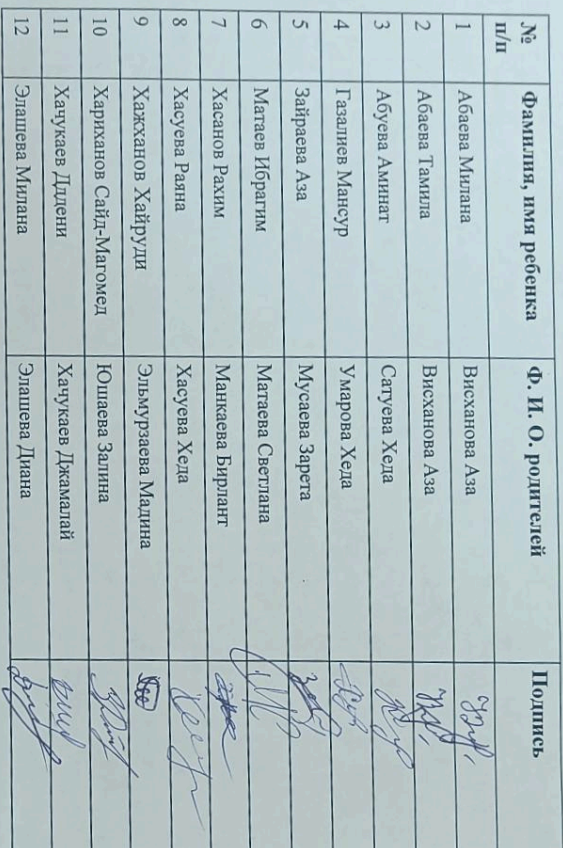 № п/п Фамилия, имя ребенка Ф. И. О. родителей Подпись
1 Абаева Милана Висханова Аза
2 Абаева Тамила Висханова Аза
3 Абуева Аминат Сатуева Хеда
4 Газалиев Мансур Умарова Хеда
5 Зайраева Аза Мусаева Зарета
6 Матаев Ибрагим Матаева Светлана
7 Хасанов Рахим Манкаева Бирлант
8 Хасуева Раяна Хасуева Хеда
9 Хажханов Хайруди Эльмурзаева Мадина
10 Хариханов Сайд-Магомед Юшаева Залина
11 Хачукаев Ддени Хачукаев Джамалай
12 Элашева Милана Элашева Диана